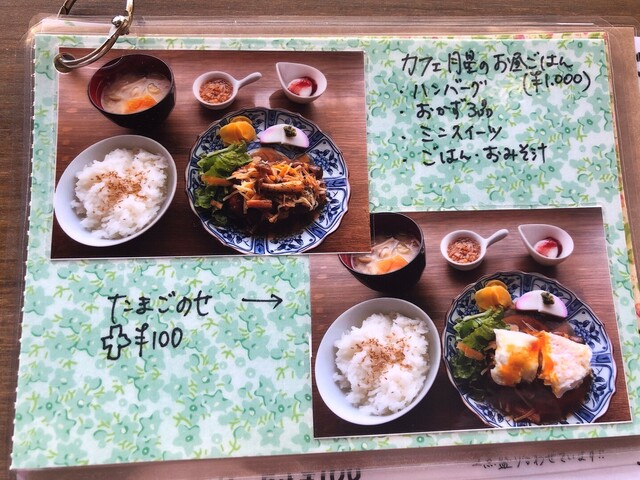 カフェ月星のお昼ごはん
(¥1,000)
・ハンバーグ
・おかず3品
・ミニスイーツ
・ごはん・おみそ汁
たまごのせ →
+¥100